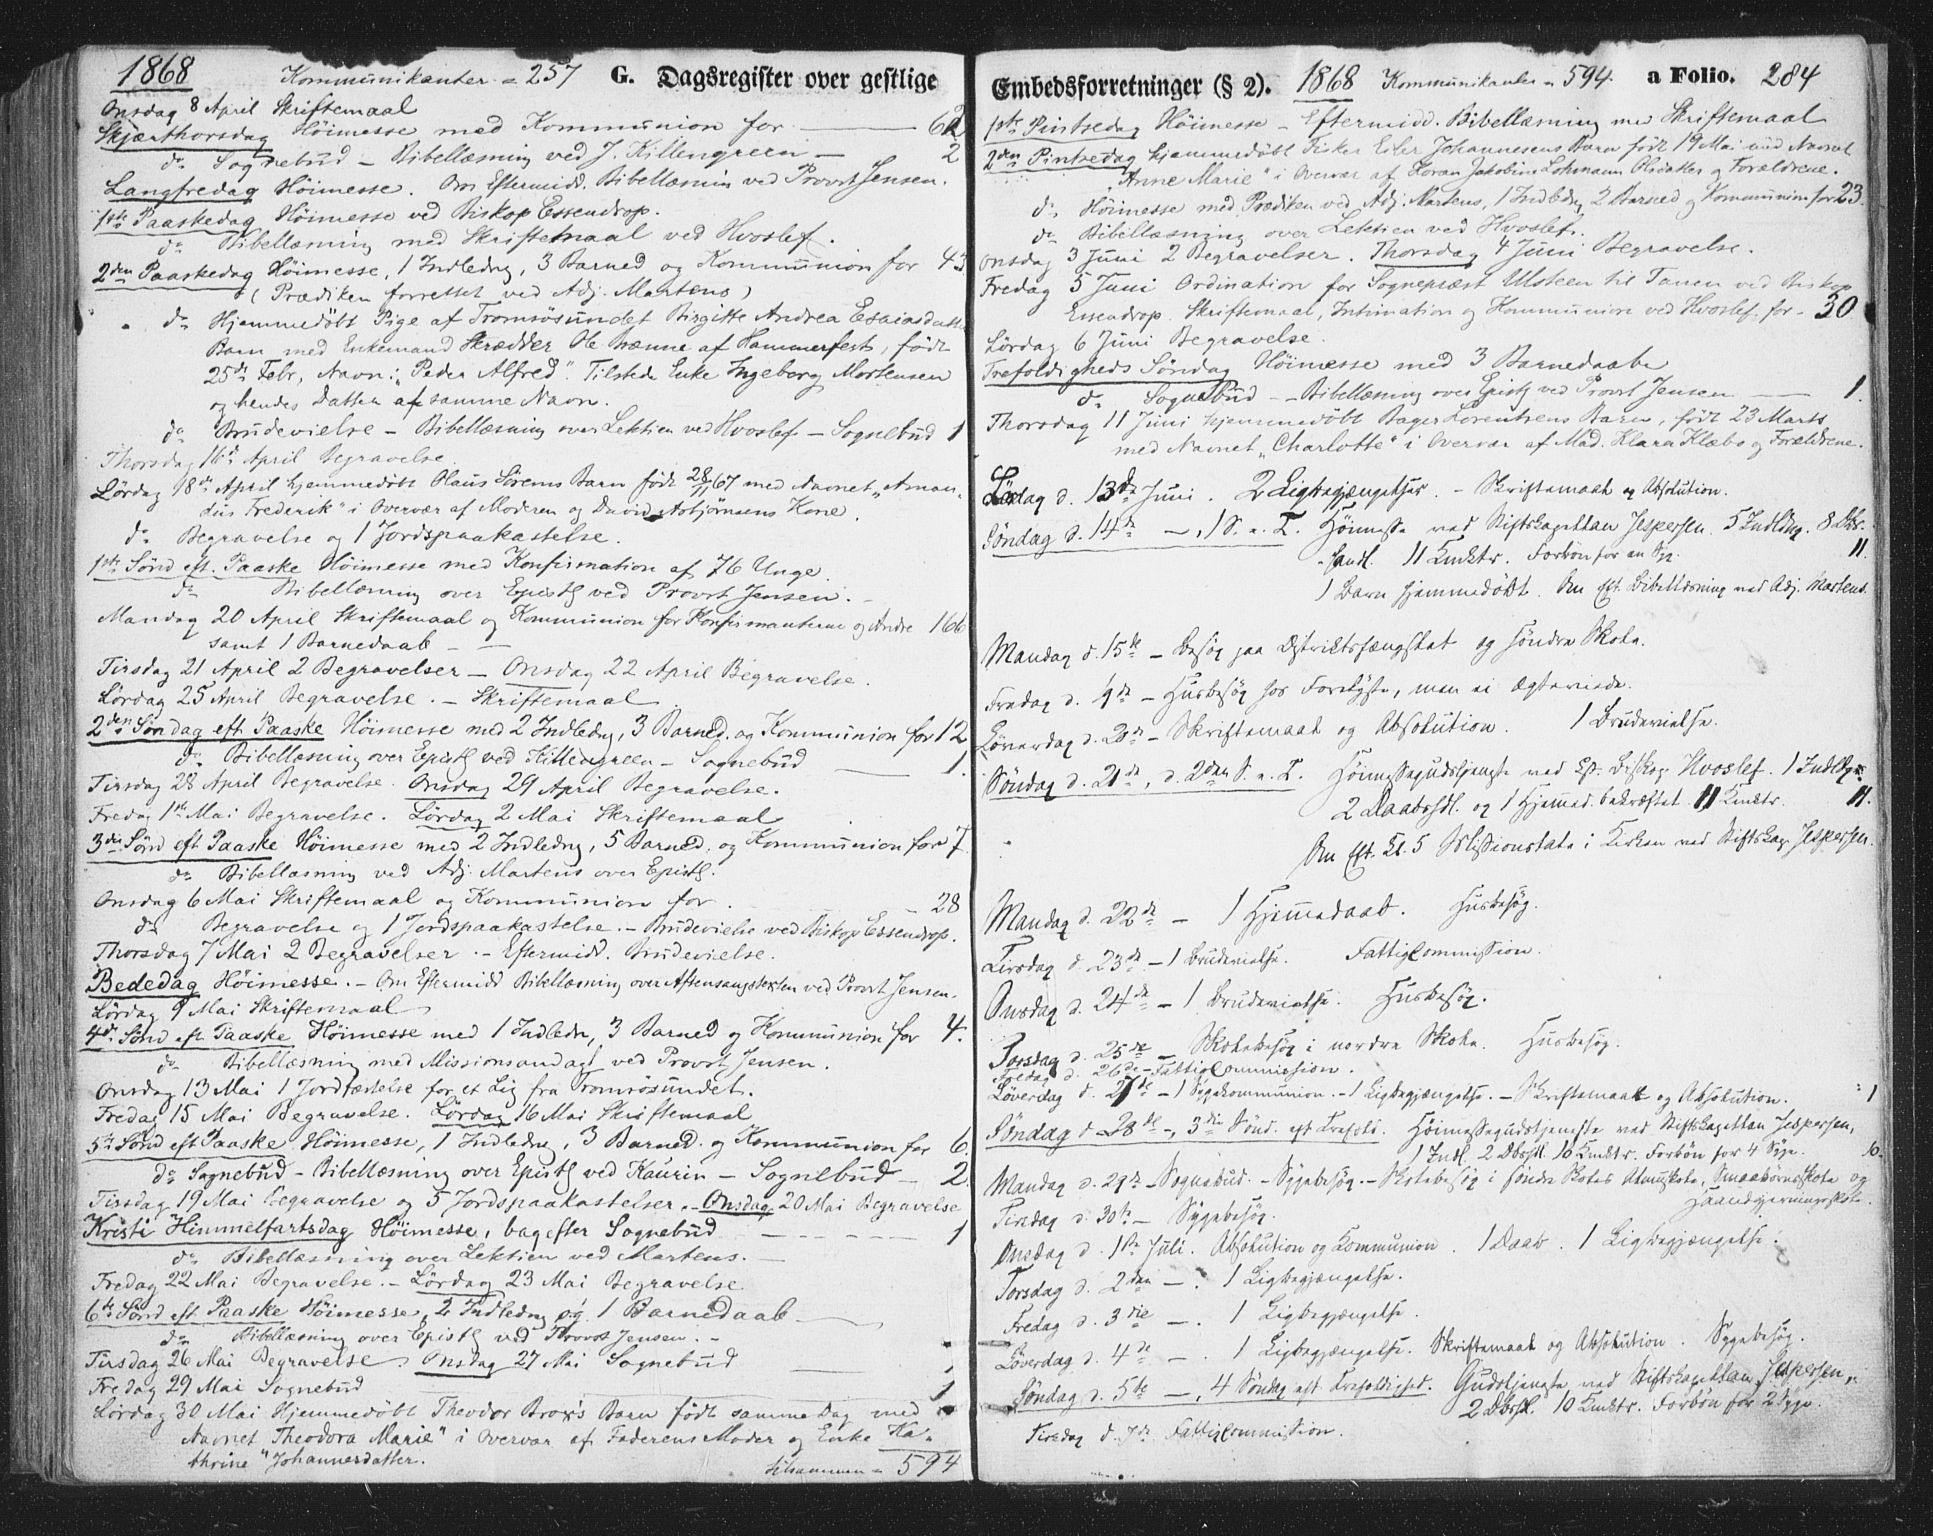 1868 Kommunikanter = 257 G. Dagsregister over gestlige
Onsdag 8 April Skriftemaal
Skjærthorsdag Höimesse med Kommunion for — 62
do Sognebud – Bibellæsning ved J. Killengreen — 2
Langfredag Höimesse. Om Eftermidd. Bibellæsning ved Provst Jensen.
1ste Paaskedag Höimesse ved Biskop Essendrop.
do Bibellæsning med Skriftemaal ved Hvoslef.
2den Paaskedag Höimesse, 1 Indledng, 3 Barned og Kommunion for 43
(Prædiken forrettet ved Adj. Martens)
do Hjemmedöbt Pige af Tromsösundet Birgitte Andrea Esaiasdatt
Barn med Enkemand Skrædder Hænne af Hammerfest, födt
25de Febr, Navn: "Peder Alfred". Tilstede Enke Ingeborg Mortensen
og hendes Datter af samme Navn.
do Brudevielse – Bibellæsning over Lektien ved Hvoslef – Sognebud 1
Thorsdag 16de April Begravelse
Lördag 18de April hjemmedöbt Olaus Sörens Barn födt 28/11 67 med Navnet "Aman-
dus Frederik" i Overvær af Moderen og David Asbjörnsens Kone.
do Begravelse og 1 Jordspaakastelse.
1ste Sönd eft. Paaske Höimesse med Konfirmation af 76 Unge.
do Bibellæsning over Epistl ved Provst Jensen. –
Mandag 20 April Skriftemaal og Kommunion for Konfirmanterne og Andre 166
samt 1 Barnedaab – –
Tirsdag 21 April 2 Begravelser – Onsdag 22 April Begravelse.
Lördag 25 April Begravelse. – Skriftemaal
2den Söndag eft Paaske Höimesse med 2 Indledng, 3 Barned. og Kommunion for 12
do Bibellæsning over Epistl ved Killengreen – Sognebud — 1.
Tirsdag 28 April Begravelse. Onsdag 29 April Begravelse.
Fredag 1ste Mai Begravelse. Lördag 2 Mai Skriftemaal
3die Sönd eft Paaske Höimesse med 2 Indledng, 5 Barned. og Kommunion for 7
do Bibellæsning ved Adj. Martens over Epistl.
Onsdag 6 Mai Skriftemaal og Kommunion for — 28
do Begravelse og 1 Jordspaakastelse. – Brudevielse ved Biskop Essendrop.
Thorsdag 7 Mai 2 Begravelser. – Eftermidd. Brudevielse.
Bededag Höimesse. – Om Eftermidd Bibellæsning over Aftensangstexten ved Provst Jensen.
Lördag 9 Mai Skriftemaal
4de Sönd eft Paaske Höimesse med 1 Indledn, 3 Barned og Kommunion for 4.
do Bibellæsning med Missionsandagt ved Provst Jensen.
Onsdag 13 Mai 1 Jordfæstelse for et Lig fra Tromsösundet.
Fredag 15 Mai Begravelse. Lördag 16 Mai Skriftemaal
5te Sönd eft Paaske Höimesse, 1 Indledng, 3 Barned. og Kommunion for 6.
do Sognebud – Bibellæsning over Epistl ved Kaurin – Sognebud — 2
Tirsdag 19 Mai Begravelse og 5 Jordspaakastelser. – Onsdag 20 Mai Begravelse
Kristi Himmelfartsdag Höimesse, bagefter Sognebud — 1
do Bibellæsning over Lektien ved Martens. –
Fredag 22 Mai Begravelse. – Lördag 23 Mai Begravelse
6te Sönd eft Paaske Höimesse, 2 Indledng og 1 Barnedaab
do Bibellæsning over Epistl ved Provst Jensen. –
Tirsdag 26 Mai Begravelse. Onsdag 27 Mai Sognebud — 1
Fredag 29 Mai Sognebud — 1
Lördag 30 Mai Hjemmedöbt Theodor Brox's Barn födt samme Dag med
Navnet "Theodora Marie" i Overvær af Faderens Moder og Enke Ka-
thrine Johannesdatter. tilsammen = 594
Embedsforretninger (§ 2). 1868 Kommunikanter = 594. a Folio. 284
1ste Pintsedag Höimesse – Eftermidd. Bibellæsning med Skriftemaal
2den Pintsedag hjemmedöbt Fisker Eiler Johannesens Barn födt 19 Mai med Navnet
"Anne Marie" i Overvær af Jakobine Lohmann Olsdatter og Forældrene.
do Höimesse med Prædiken ved Adj. Martens, 1 Indledng 2 Barned og Kommunion for 23.
do Bibellæsning over Lektien ved Hvoslef.
Onsdag 3 Juni 2 Begravelser. Thorsdag 4 Juni Begravelse.
Fredag 5 Juni Ordination for Sognepræst Ulsteen til Tanen ved Biskop
Essendrop. Skriftemaal, Intimation og Kommunion ved Hvoslef. for – 30
Lördag 6 Juni Begravelse.
Trefoldigheds Söndag Höimesse med 3 Barnedaabe
do Sognebud – Bibellæsning over Epistl ved Provst Jensen — 1.
Thorsdag 11 Juni hjemmedöbt Bager Lorentzens Barn, födt 23 Marts
med Navnet "Charlotte" i Overvær af Mad. Klara Klæbo og Forældrene.
Lördag d. 13de Juni. 2 Ligbegjængelser – Skriftemaal og Absolution.
Söndag d. 14de –, 1 S. e. T. Höimesse ved Stiftskapellan Jespersen. 5 Indldng. 8 Dbs-
handl. 11 Kmktr. Forbön for en Syg. 11.
1 Barn hjemmedöbt. Om Eft. Bibellæsning ved Adj. Martens.
Mandag d. 15de – Besög paa Distriktsfængslet og söndre Skole.
Fredag d. 19de – Husbesög hos Forelskte, men ei Ægteviede.
Löverdag d. 20de – Skriftemaal og Absolution. 1 Brudevielse.
Söndag d. 21de, d. 2den S. e. T. Höimessegudstjeneste ved Eft. Biskop Hvoslef. 1 Indldg.
2 Daabshdl. og 1 Hjemmed. bekræftet 11 Kmktr. 11.
Om Eft. Kl. 5 Missionstale i Kirken ved Stiftskap. Jespersen.
Mandag d. 22de – 1 Hjemmedaab. Husbesög.
Tirsdag d. 23de – 1 Brudevielse. Fattigcommission.
Onsdag d. 24de – 1 Brudevielse. Husbesög.
Torsdag d. 25de – Skolebesög i nordre Skole. Husbesög.
Fredag d. 26de – Fattigcommission.
Löverdag d. 27de – 1 Sygekommunion. – 1 Ligbegjængelse. – Skriftemaal og Absolution. 1
Söndag d. 28de –, 3die Sönd. eft Trefold. Höimessegudstjeneste ved Stiftskapellan Jespersen,
1 Indl. 2 Dbshdl. 10 Kmktr. Forbön for 4 Syge. 10.
Mandag d. 29de – Sognebud. – Sygebesög. – Skolebesög i söndre Skoles Almuskole, Smaabörnsskole og
Haandgjerningsskole.
Tirsdag d. 30te – Sygebesög.
Onsdag d. 1ste Juli. Absolution og Communion. 1 Daab. 1 Ligbegjængelse.
Torsdag d. 2den –. 1 Ligbegjængelse.
Fredag d. 3die –. 1 Ligbegjængelse.
Löverdag d. 4de –. 1 Ligbegjængelse. Skriftemaal og Absolution. Sygebesög.
Söndag d. 5te –, 4 Söndag eft Trefoldighed. Gudstjeneste ved Stiftskapellan Jespersen,
2 Dbshdl. 10 Kmktr. Forbön for 2 Syge.
Tirsdag d. 7de. Fattigcommission.